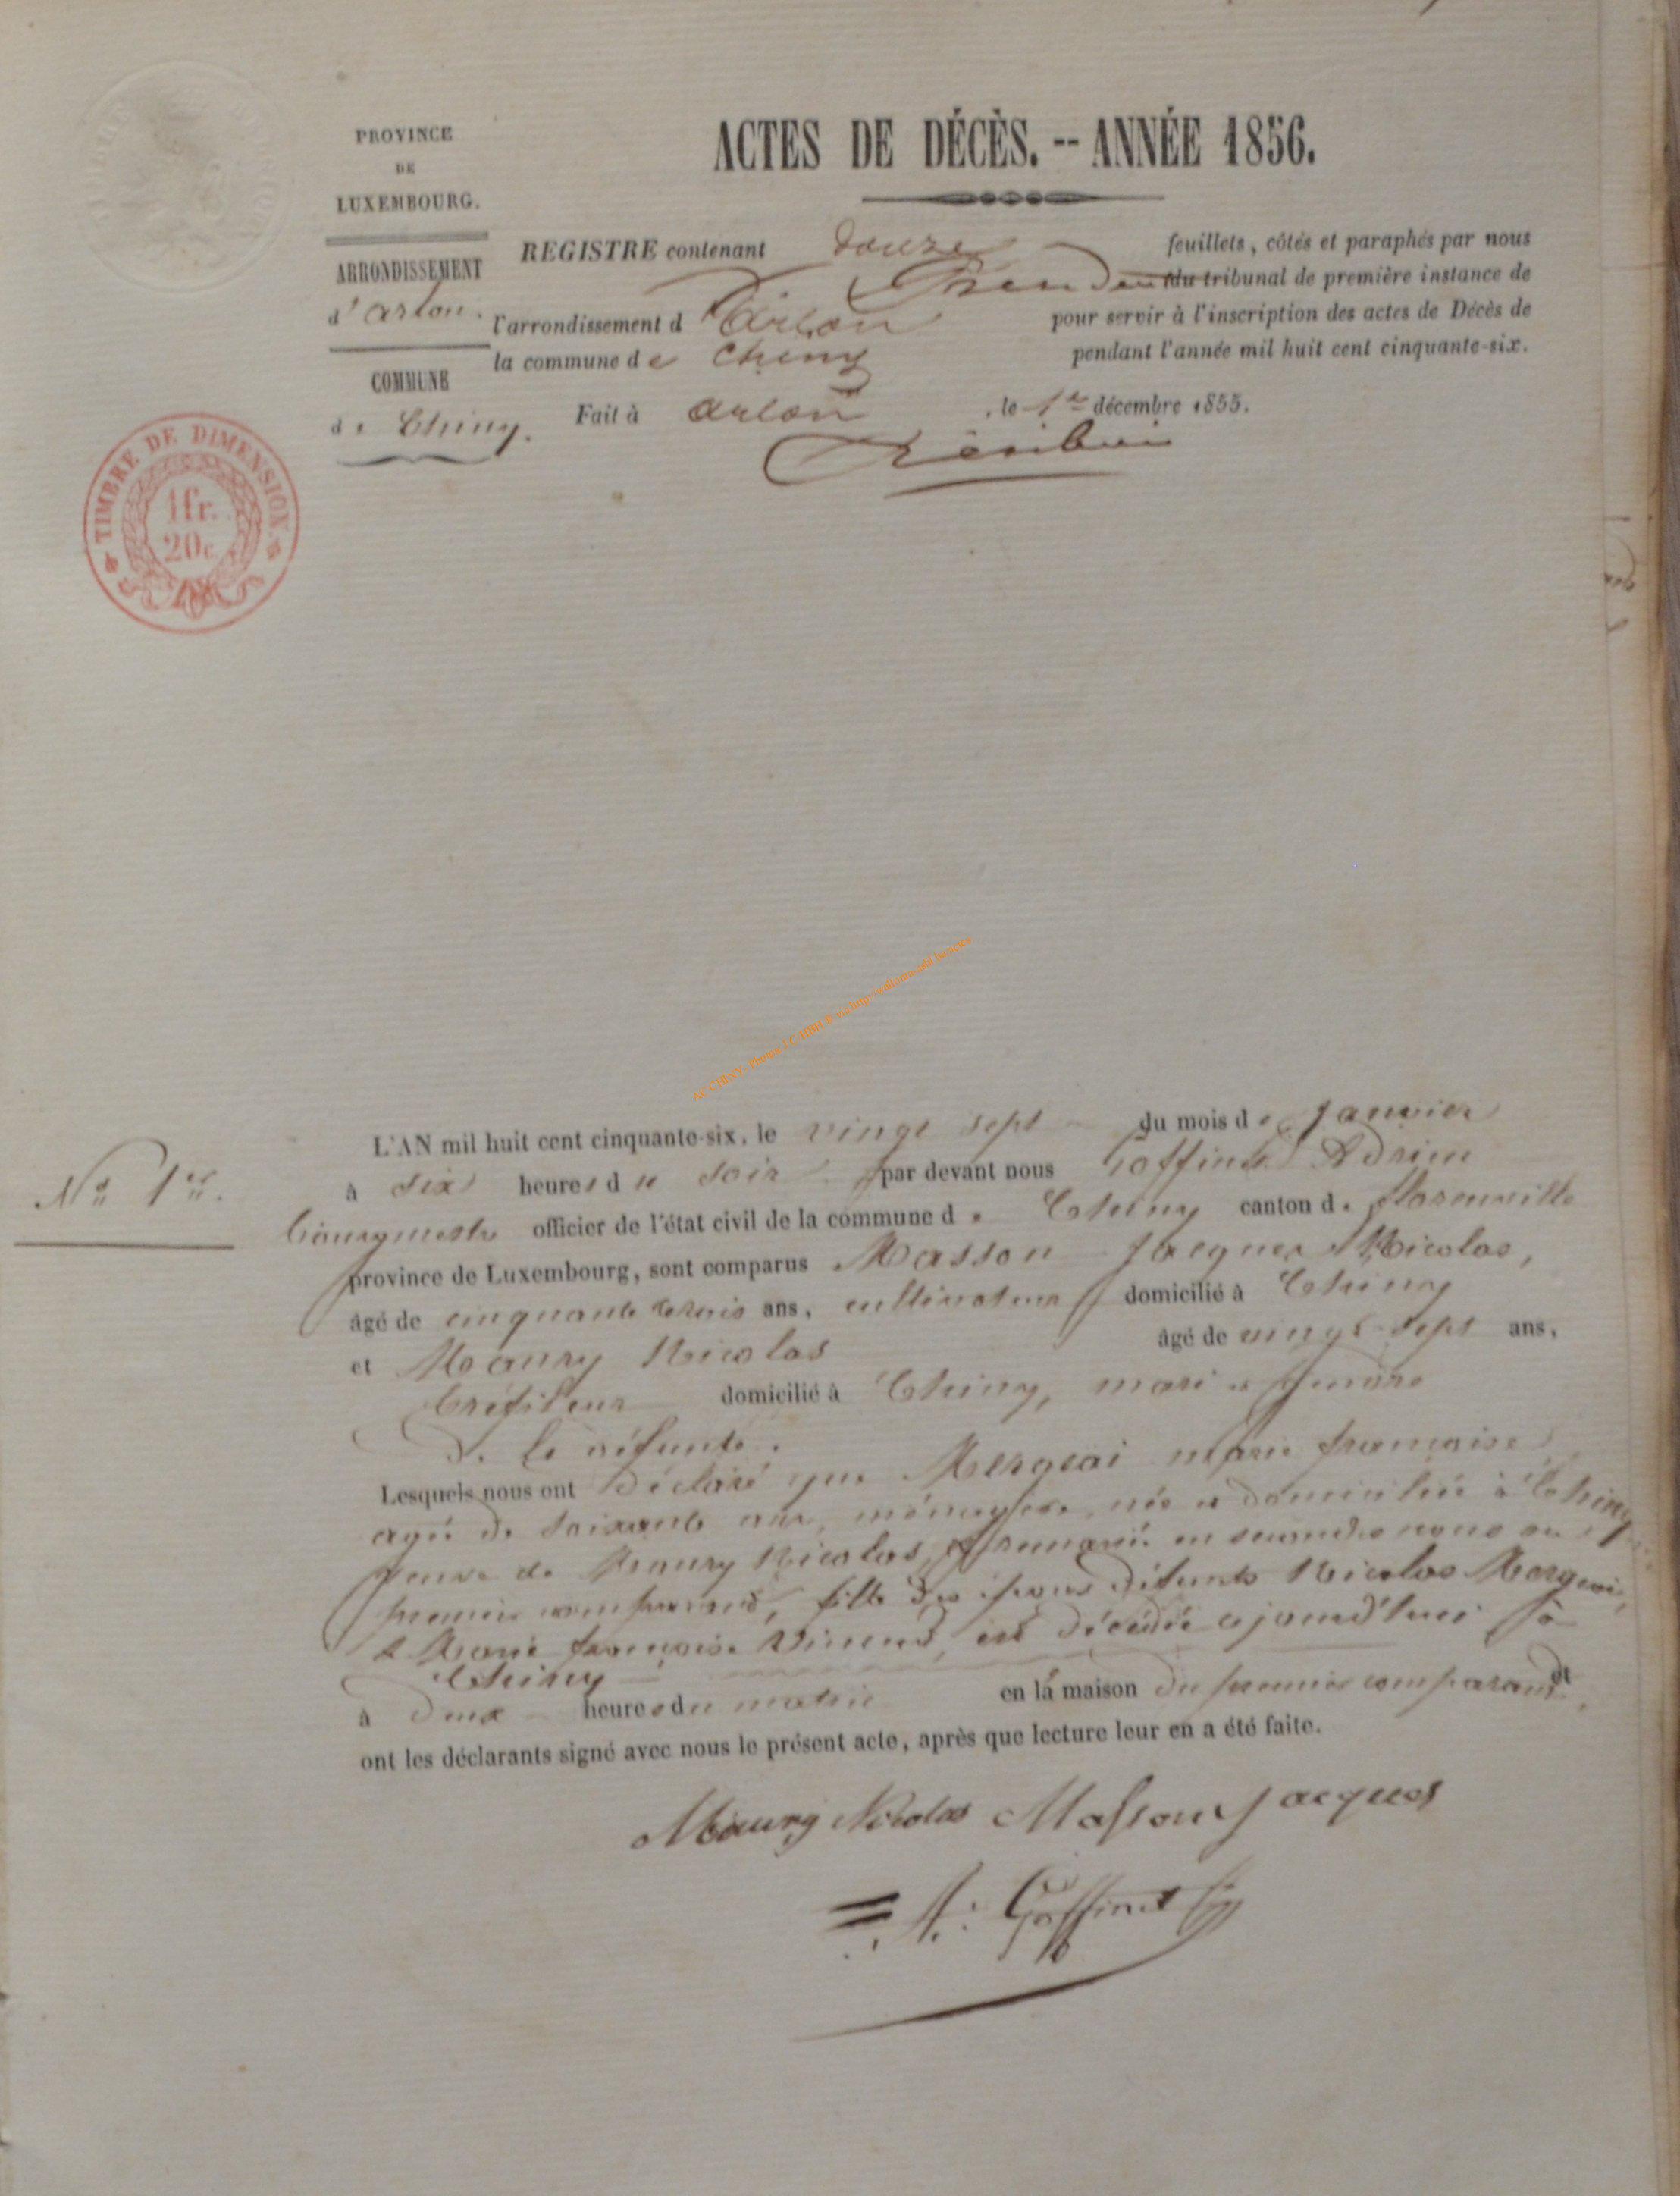 PROVINCE
DE
LUXEMBOURG.
ARRONDISSEMENT
d'Arlon.
COMMUNE
de Chiny.
ACTES DE DÉCÈS. -- ANNÉE 1856.
REGISTRE contenant douze feuillets, côtés et paraphés par nous
du tribunal de première instance de
l'arrondissement d'Arlon pour servir à l'inscription des actes de Décès de
la commune de Chiny pendant l'année mil huit cent cinquante-six.
Fait à Arlon, le 1er décembre 1855.
TIMBRE DE DIMENSION
1fr.
20c
No 1er.
L'AN mil huit cent cinquante-six, le vingt sept du mois de Janvier
à six heures du soir par devant nous Goffinet Adrien
bourgmestre officier de l'état civil de la commune de Chiny canton de Florenville
province de Luxembourg, sont comparus Masson Jacques Nicolas,
âgé de cinquante trois ans, cultivateur domicilié à Chiny
et Maury Nicolas âgé de vingt-sept ans,
tréfileur domicilié à Chiny, mari et gendre
de la défunte.
Lesquels nous ont déclaré que Mergeai marie françoise
agée de soixante ans, ménagère, née et domiciliée à Chiny
veuve de Maury Nicolas, et remariée en secondes noces au
premier comparant, fille des époux défunts Nicolas Mergeai,
& Marie françoise, est décédée ajourd'hui à
Chiny
à deux heures du matin en la maison du premier comparant et
ont les déclarants signé avec nous le présent acte, après que lecture leur en a été faite.
Maury Nicolas Masson Jacques
A: Goffinet